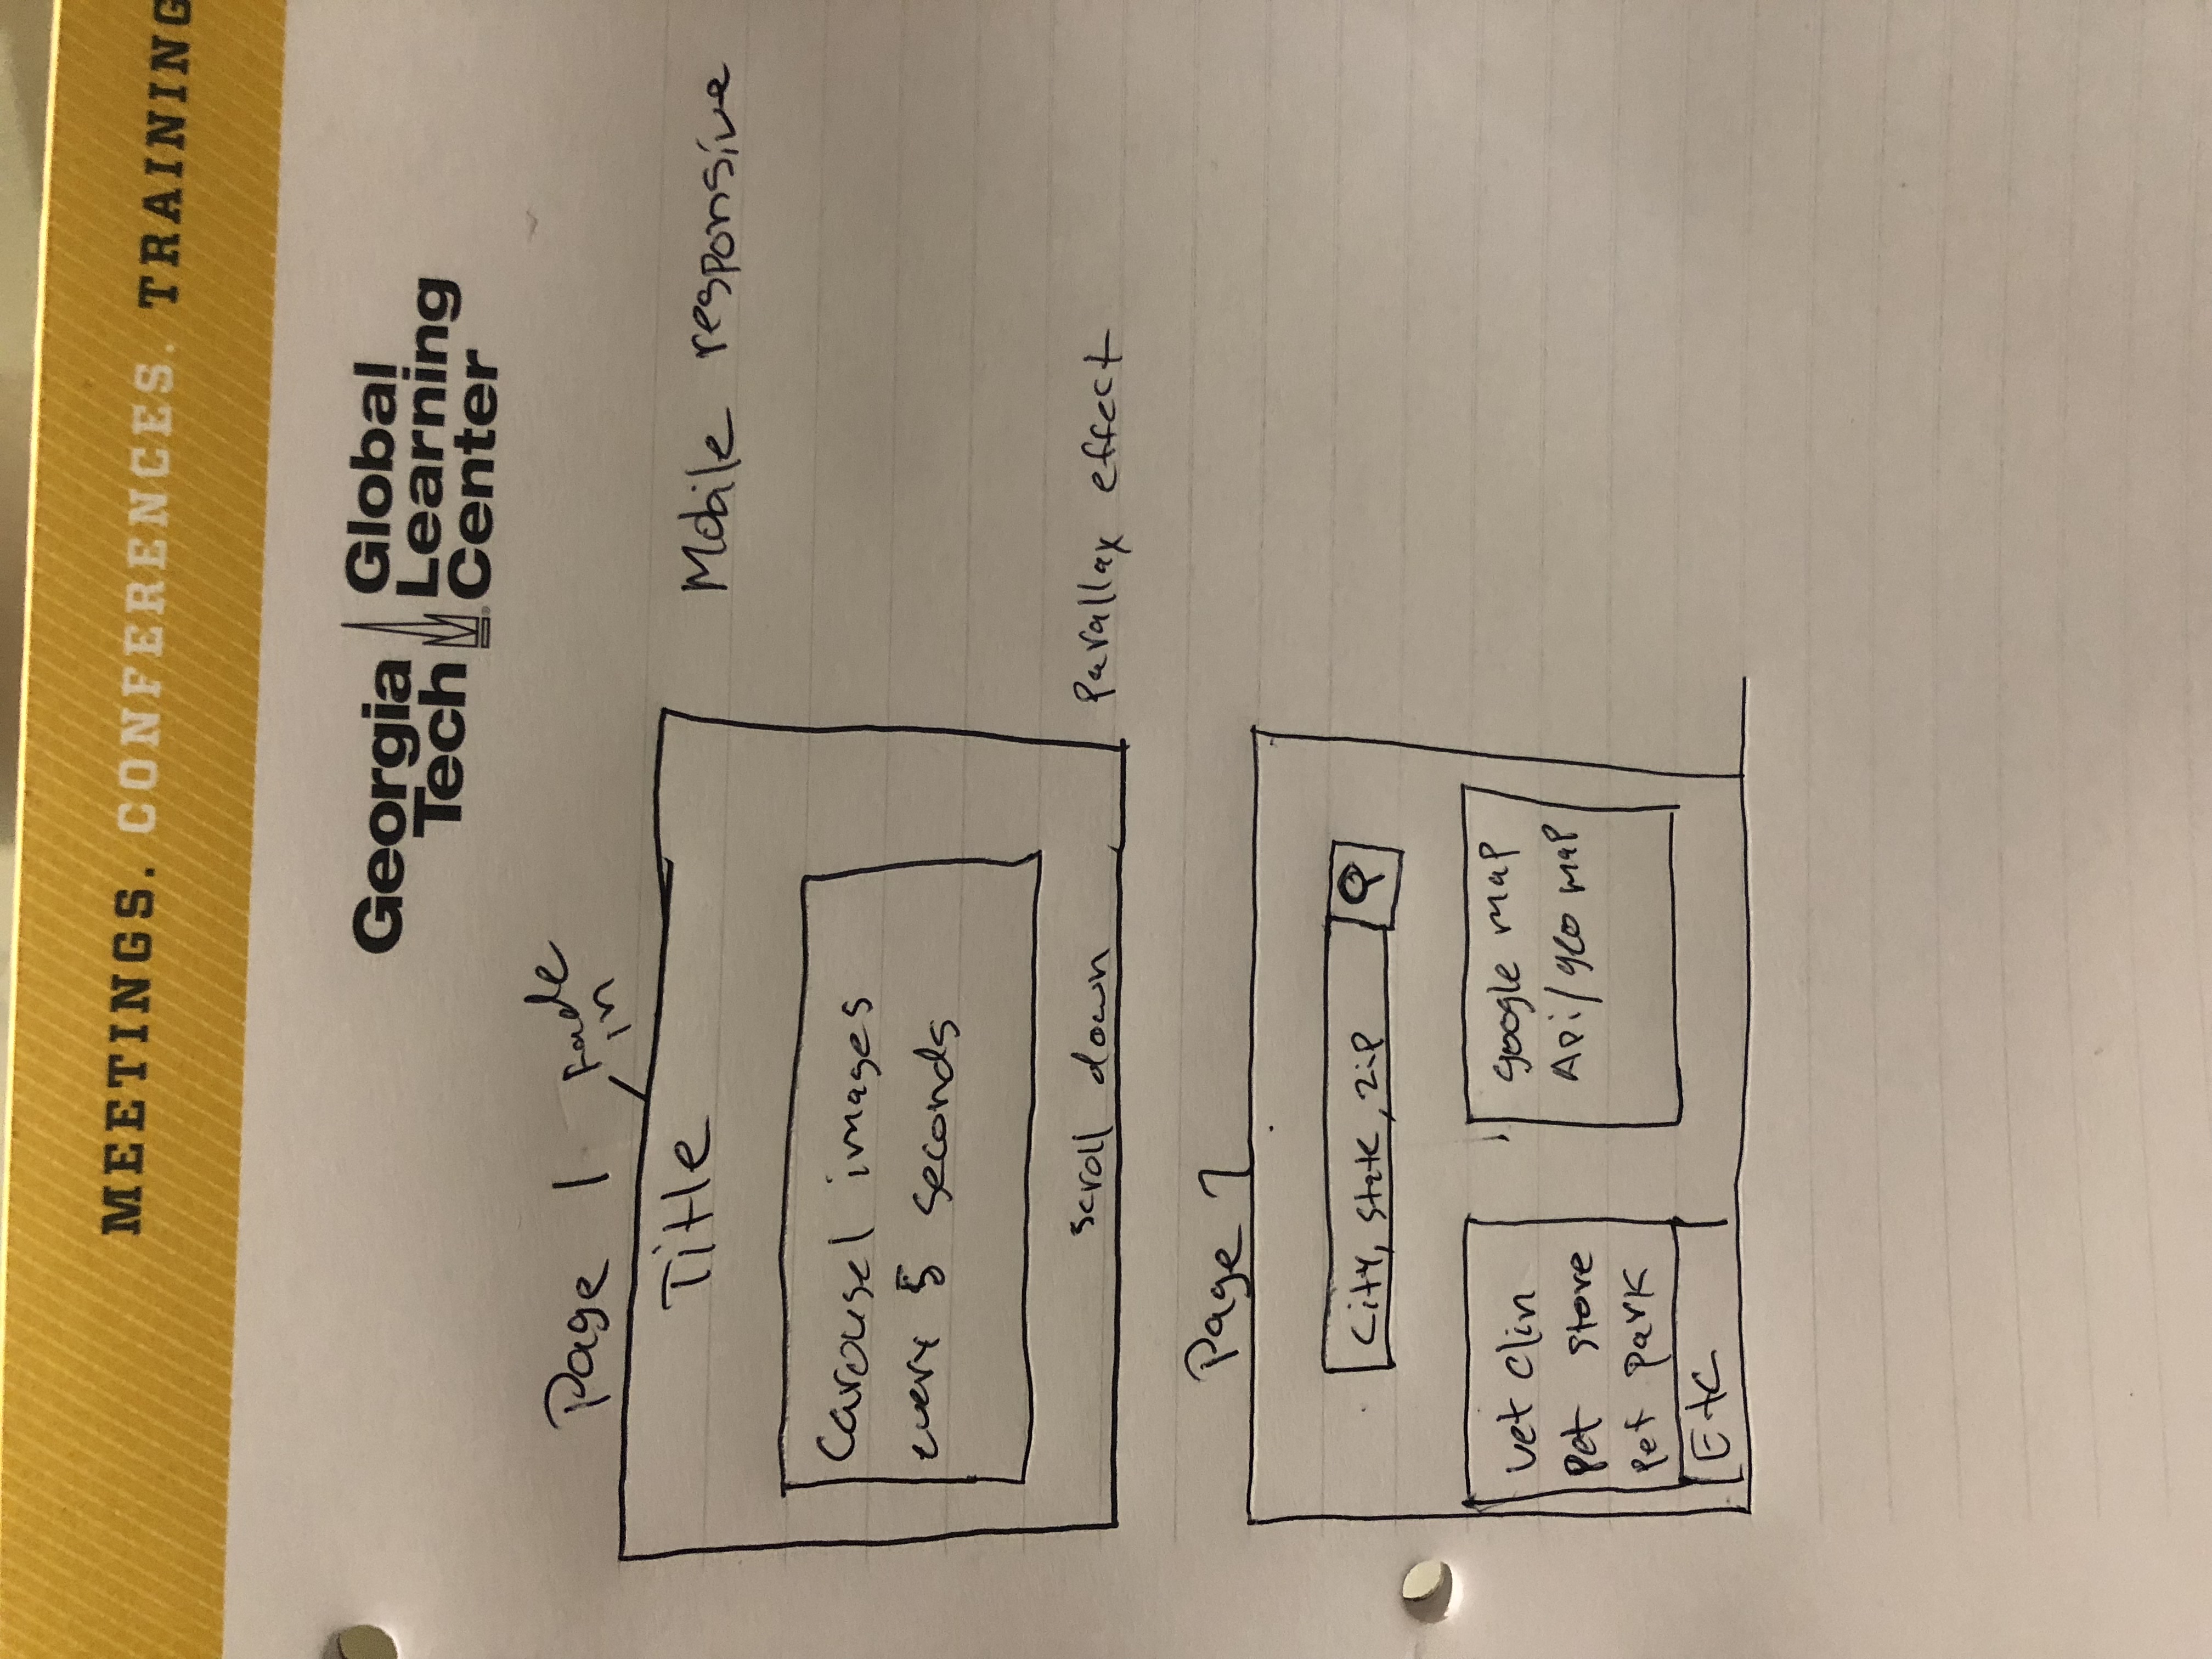 MEETINGS. CONFERENCES. TRAINING
Georgia Tech
Global Learning Center
Page 1
Fade in
Title
Mobile responsive
Carousel images
every 5 seconds
scroll down
Parallax effect
Page 2
City, state, zip
vet clin
pet store
pet park
Etc
google map
Api/geo map